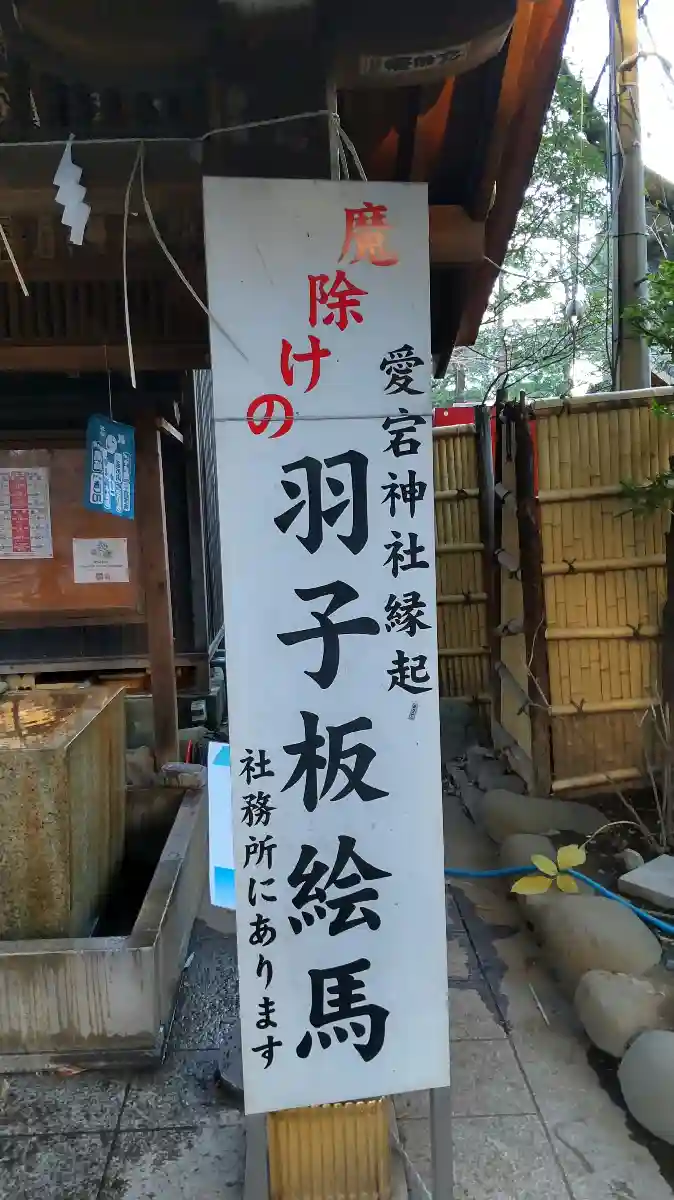 魔除けの
愛宕神社縁起
羽子板絵馬
社務所にあります